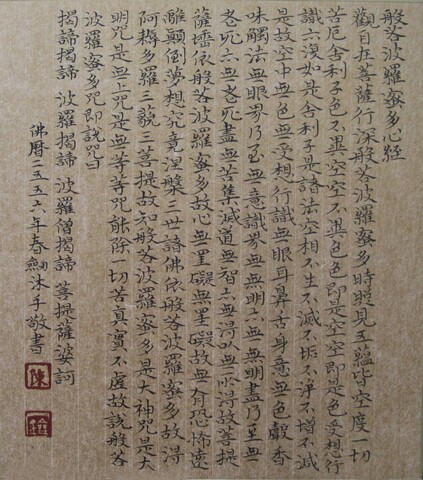 般若波羅蜜多心經
觀自在菩薩行深般若波羅蜜多時照見五蘊皆空度一切
苦厄舍利子色不異空空不異色色即是空空即是色受想行
識亦復如是舍利子是諸法空相不生不滅不垢不淨不增不減
是故空中無色無受想行識無眼耳鼻舌身意無色聲香
味觸法無眼界乃至無意識界無無明亦無無明盡乃至無
老死亦無老死盡無苦集滅道無智亦無得以無所得故菩提
薩埵依般若波羅蜜多故心無罣礙無罣礙故無有恐怖遠
離顛倒夢想究竟涅槃三世諸佛依般若波羅蜜多故得
阿耨多羅三藐三菩提故知般若波羅蜜多是大神咒是大
明咒是無上咒是無等等咒能除一切苦真實不虛故說般若
波羅蜜多咒即說咒曰
揭諦揭諦 波羅揭諦 波羅僧揭諦 菩提薩婆訶
佛曆二五五六年春劍沐手敬書
陳